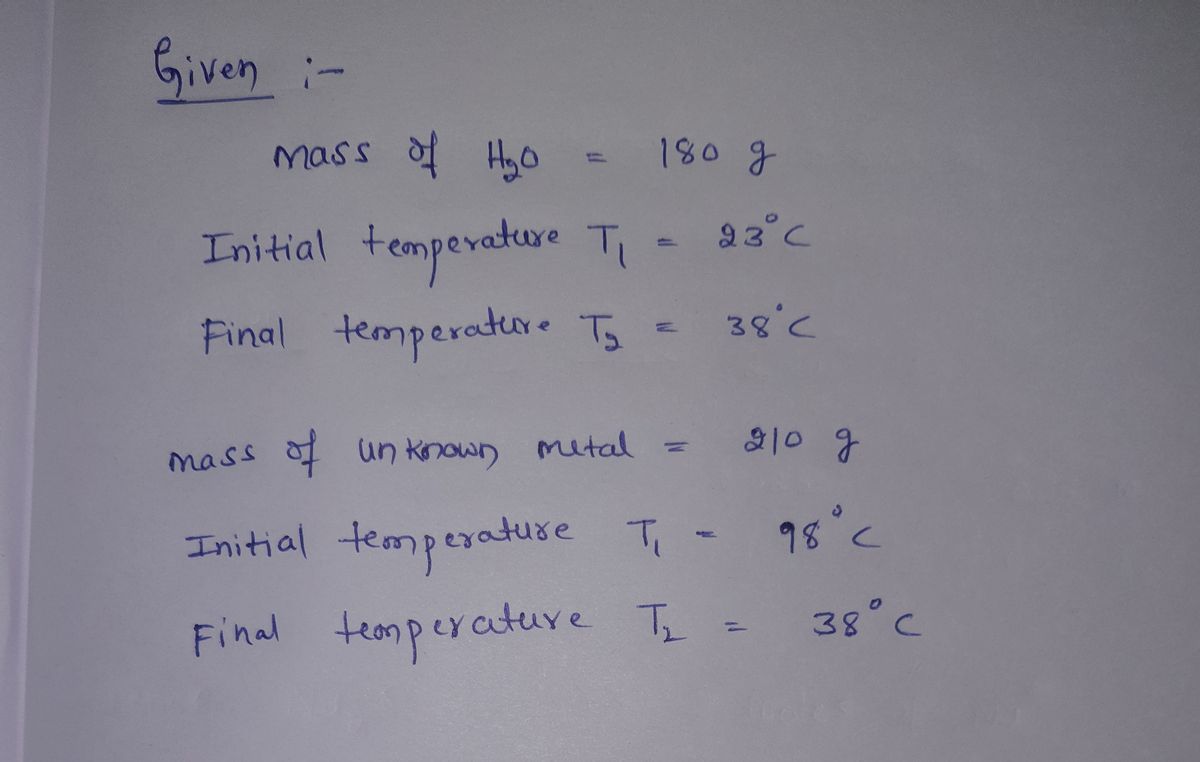 Given :-
mass of H₂O = 180 g
Initial temperature T₁ = 23°C
Final temperature T₂ = 38°C
mass of unknown metal = 210 g
Initial temperature T₁ = 98°C
Final temperature T₂ = 38°C